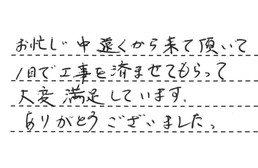 お忙しい中遠くから来て頂いて
1日で工事を済ませてもらって
大変満足しています.
ありがとうございました。